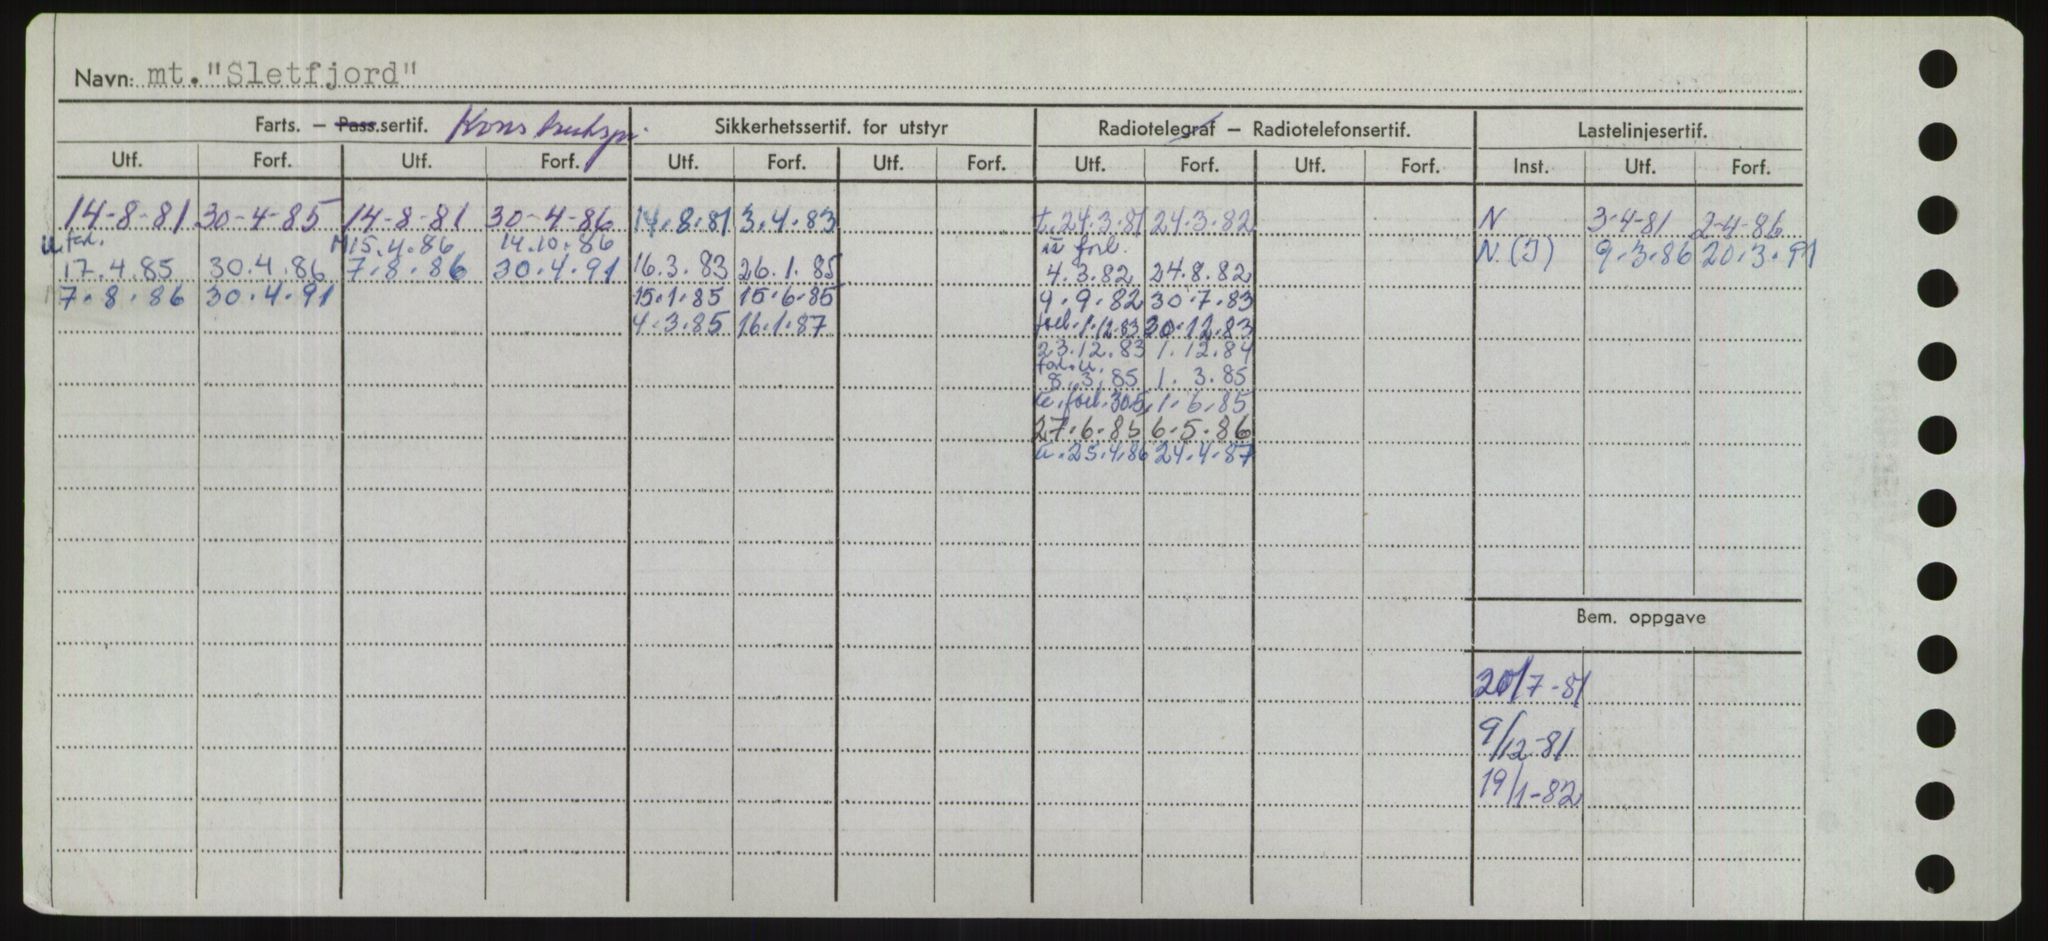 Navn: mt. "Sletfjord"
Farts. – Pass.sertif. Sikkerhetssertif. for utstyr Radiotelegraf – Radiotelefonsertif. Lastelinjesertif.
Utf. Forf. Utf. Forf. Utf. Forf. Utf. Forf. Utf. Forf. Utf. Forf. Inst. Utf. Forf.
14-8-81 30-4-85 14-8-81 30-4-86 14.8.81 3.4.83 t. 24.3.81 24.3.82 N 3-4-81 2-4-86
15.4.86 14.10.86 forl.
17.4.85 30.4.86 7.8.86 30.4.91 16.3.83 26.1.85 4.3.82 24.8.82 N.(I) 9.3.86 20.3.91
7.8.86 30.4.91 15.1.85 15.6.85 9.9.82 30.7.83
4.3.85 16.1.87 forl. 1.12.83 30.12.83
23.12.83 1.12.84
8.3.85 1.3.85
forl. 30.5. 1.6.85
27.6.85 6.5.86
u. 25.4.86 24.4.87
Bem. oppgave
20/7-81
9/12-81
19/1-82